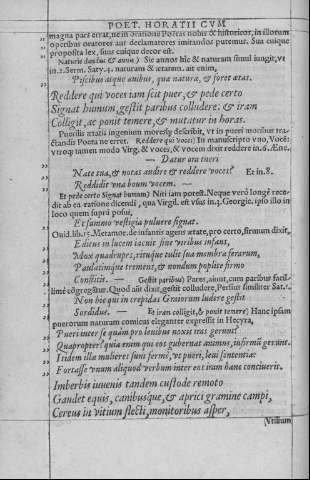 POET. HORATII CVM
magna pars errat, ne in oratione Poetas nobis & historicos, in illorum
operibus oratores aut declamatores imitandos putemus. Sua cuique
proposita lex, suus cuique decor est.
Naturis dandus & annis) Sic annos hic & naturam simul iungit, vt
in 2. Serm. Saty. 4. naturam & ætatem. ait enim,
Piscibus atque auibus, qua natura, & foret ætas.
Reddere qui voces iam scit puer, & pede certo
Signat humum, gestit paribus colludere: & iram
Colligit, ac ponit temerè, & mutatur in horas.
Puerilis ætatis ingenium moresq; describit, vt in pueri moribus tra-
ctandis Poeta ne erret. Reddere qui voces) In manuscripto vno, Vocē:
vtroq; tamen modo Virg. & voces, & vocem dixit reddere in 6. Æne.
— Datur ora tueri
Nate tua, & notas audire & reddere voces? Et in 8.
Reddidit vna boum vocem. —
Et pede certo Signat humum) Niti iam potest. Neque verò longè rece-
dit ab ea ratione dicendi, qua Virgil. est vsus in 3. Georgic. ipso illo in
loco quem suprà posui,
Et summo vestigia puluere signat.
Ouid. lib. 15. Metamor. de infantis agens ætate, pro certo, firmum dixit,
Editus in lucem iacuit sine viribus infans,
Mox quadrupes, rituque tulit sua membra ferarum,
Paulatimque tremens, & nondum poplite firmo
Constitit. — Gestit paribus) Pares, aiunt, cum paribus facil-
limè cōgregātur. Quod aūt dixit, gestit colludere, Persius similiter Sat. 1.
Non hoc qui in crepidas Graiorum ludere gestit
Sordidus. — Et iram colligit, & ponit temerè) Hanc ipsam
puerorum naturam comicus eleganter expressit in Hecyra,
Pueri inter se quàm pro leuibus noxiis iras gerunt?
Quapropter? quia enim qui eos gubernat animus, infirmū gerunt.
Itidem illæ mulieres sunt fermè, vt pueri, leui sententia:
Fortasse vnum aliquod verbum inter eas iram hanc conciuerit.
Imberbis iuuenis tandem custode remoto
Gaudet equis, canibusque, & aprici gramine campi,
Cereus in vitium flecti, monitoribus asper,
(Vtilium